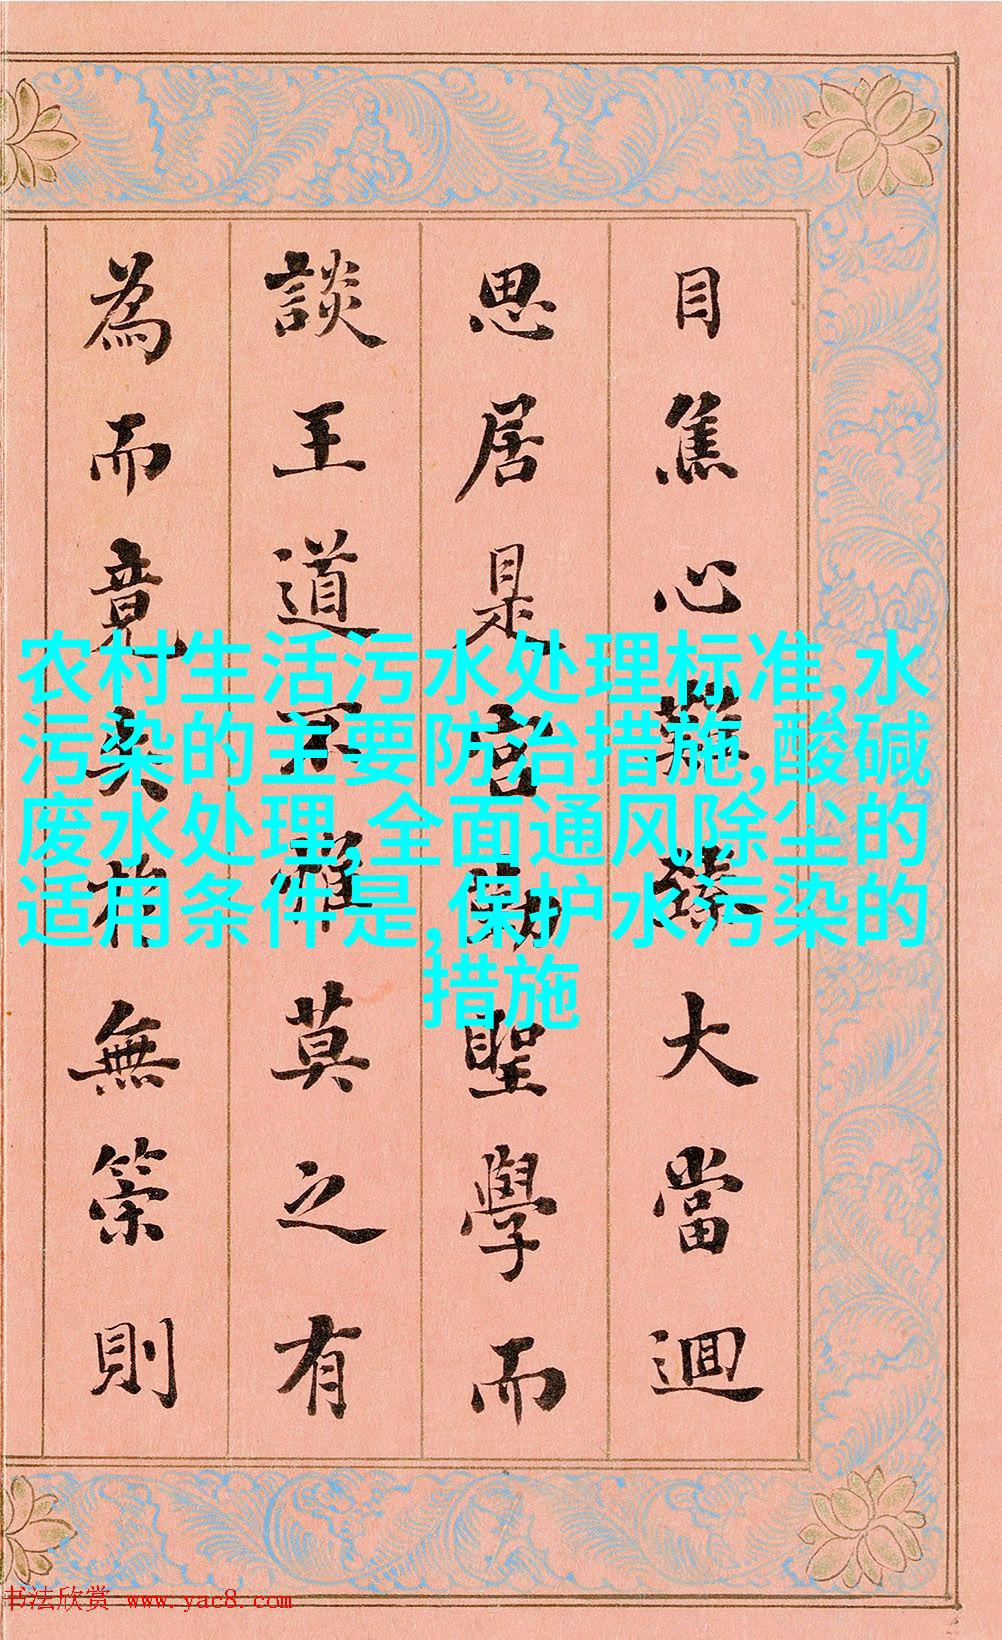 目焦心難大當迴
思居是宮勤聖學而
談王道不莫之有
為而竟無策則
农村生活污水处理标准,水
污染的主要防治措施,酸碱
废水处理,全面通风除尘的
适用条件是,保护水污染的
措施
书法欣赏 www.yac8.com